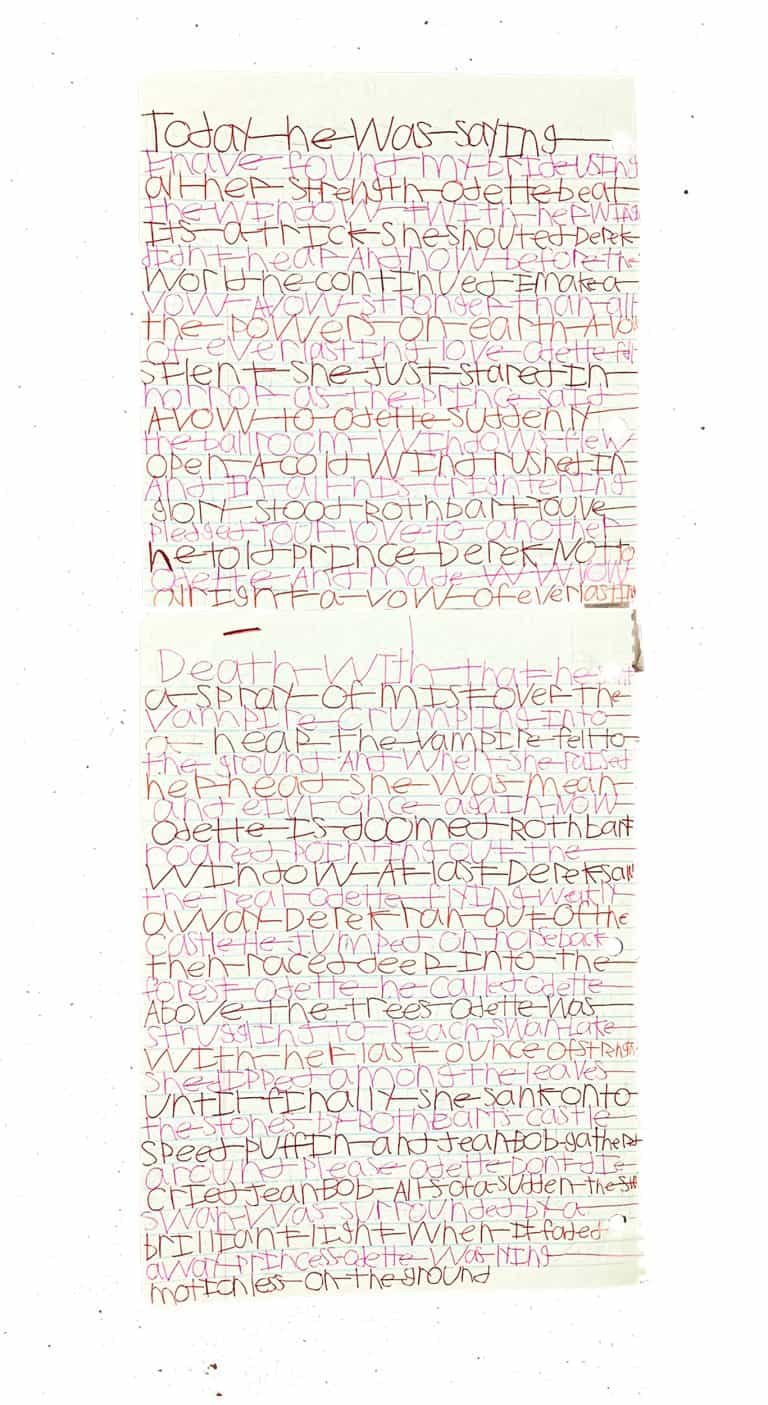 Today he was saying
I have found my bride using
all her strength Odette beat
the window with her wing
Its a trick she shouted Derek
didnt hear And now before the
world he continued I make a
vow A vow stronger than all
the powers on earth A vow
of everlasting love Odette fell
silent she just stared in
horror as the prince said
A vow to Odette suddenly
the ballroom windows flew
open A cold wind rushed in
And in all his frightening
glory stood Rothbart Youve
pledged your love to another
he told prince Derek Not to
Odette And made
alright a vow of everlasting
Death with that he
a spray of mist over the
vampire crumpling into
a heap the vampire fell to
the ground And when she raised
her head she was mean
and once again now
Odette Is doomed Rothbart
roared pointing out the
window At last Derek saw
the real Odette flying
away Derek ran out of the
castle He jumped on horseback
then raced deep into the
forest Odette he called Odette
Above the trees Odette was
struggling to reach swan Lake
with her last ounce of strength
she dipped among the leaves
until finally she sank onto
the stones by Rothbarts castle
speed puffin and jean Bob gathered
around please Odette Dont die
cried jean Bob All of a sudden the
swan was surrounded by a
brilliant light When it faded
away princess Odette was lying
motionless on the ground